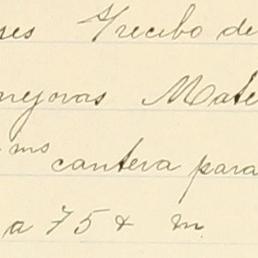 ses Yrecibo de
mejoras Mate
ms cantera para
a 75 & m.